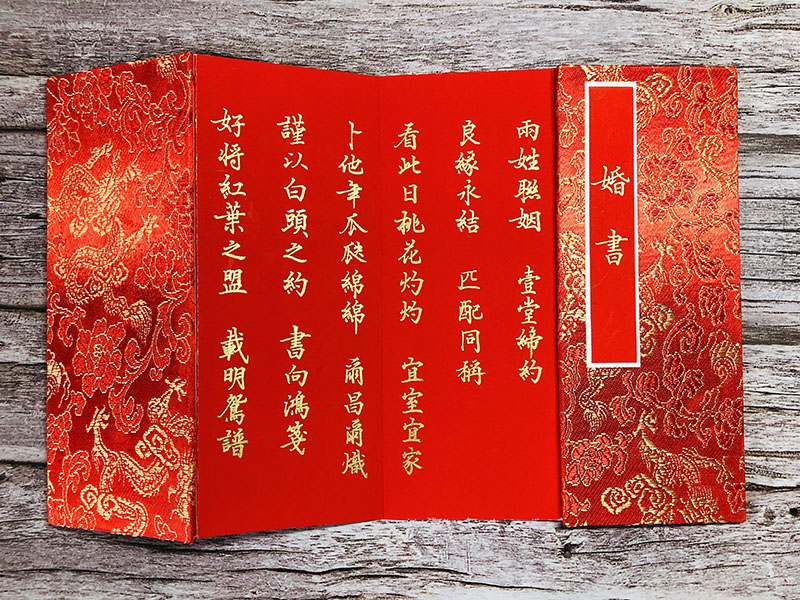 婚書
兩姓聯姻 壹堂締約
良緣永結 匹配同稱
看此日桃花灼灼 宜室宜家
卜他年瓜瓞綿綿 爾昌爾熾
謹以白頭之約 書向鴻箋
好將紅葉之盟 載明鴛譜